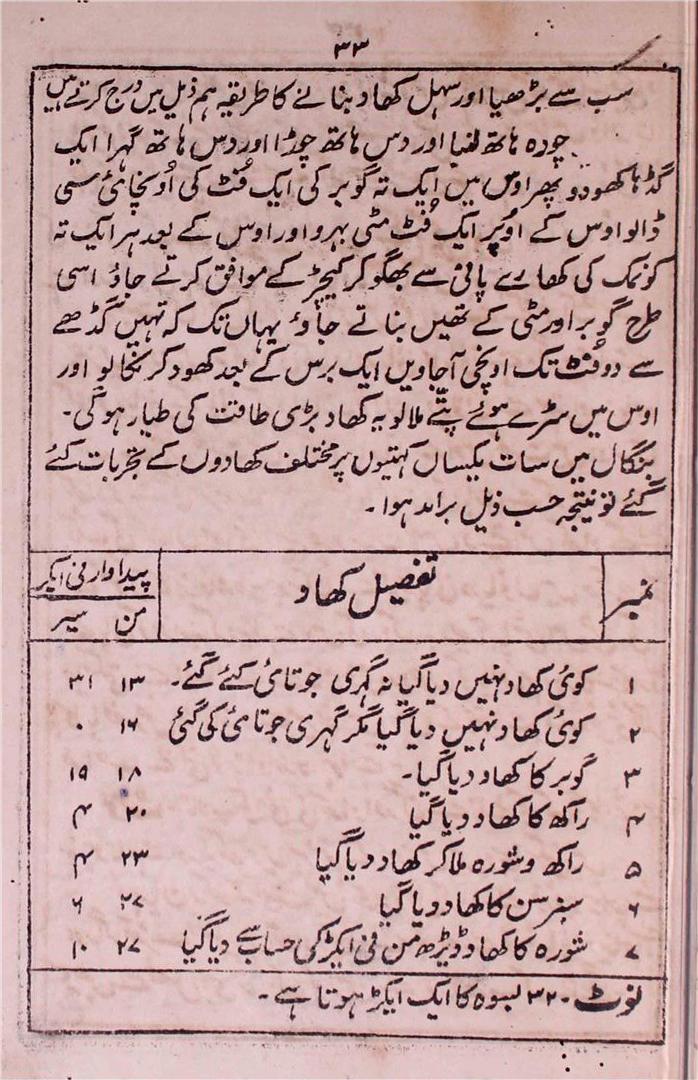 ۳۳
سب سے بڑھیا اور سہل کھاد بنانے کا طریقہ ہم ذیل میں درج کرتے ہیں
چودہ ہاتھ لنبا اور دس ہاتھ چوڑا اور دس ہاتھ گہرا ایک
گڈہا کھودو پھر اوس میں ایک تہ گوبر کی ایک فُٹ کی اُونچائی سی
ڈالو اوس کے اوُپر ایک فُٹ مٹی بہرو اور اوس کے بعد ہر ایک تہ
کو نمک کی کھارے پانی سے بھگو کر کیچڑ کے موافق کرتے جاؤ اسی
طرح گوبر اور مٹی کے تھیں بناتے جاؤ یہاں تک کہ تہیں گڈھے
سے دو فٹ تک اونچی آجاویں ایک برس کے بعد کھود کر نکالو اور
اوس میں سڑے ہوئے پتّے ملا لو یہ کھاد بڑی طاقت کی طیار ہوگی۔
بنگال میں سات یکساں کہتیوں پر مختلف کھادوں کے تجربات کئے
گئے تو نتیجہ حسب ذیل برامد ہوا۔
نمبر تفصیل کھاد پیداوار فی ایکڑ
من سیر
۱ کوئی کھاد نہیں دیا گیا نہ گہری جوتائی کئے گئے۔ ۱۳ ۳۱
۲ کوئی کھاد نہیں دیا گیا مگر گہری جوتائی کی گئی ۱۶ ۰
۳ گوبر کا کھاد دیا گیا۔ ۱۸ ۱۹
۴ راکھ کا کھاد دیا گیا ۲۰ ۴
۵ راکھ و شورہ ملا کر کھاد دیا گیا ۲۳ ۴
۶ سبز سن کا کھاد دیا گیا ۲۷ ۶
۷ شورہ کا کھاد ڈیڑھ من فی ایکڑ کی حساب سے دیا گیا ۲۷ ۱۰
نوٹ۔ ۳۲ بسوہ کا ایک ایکڑ ہوتا ہے۔